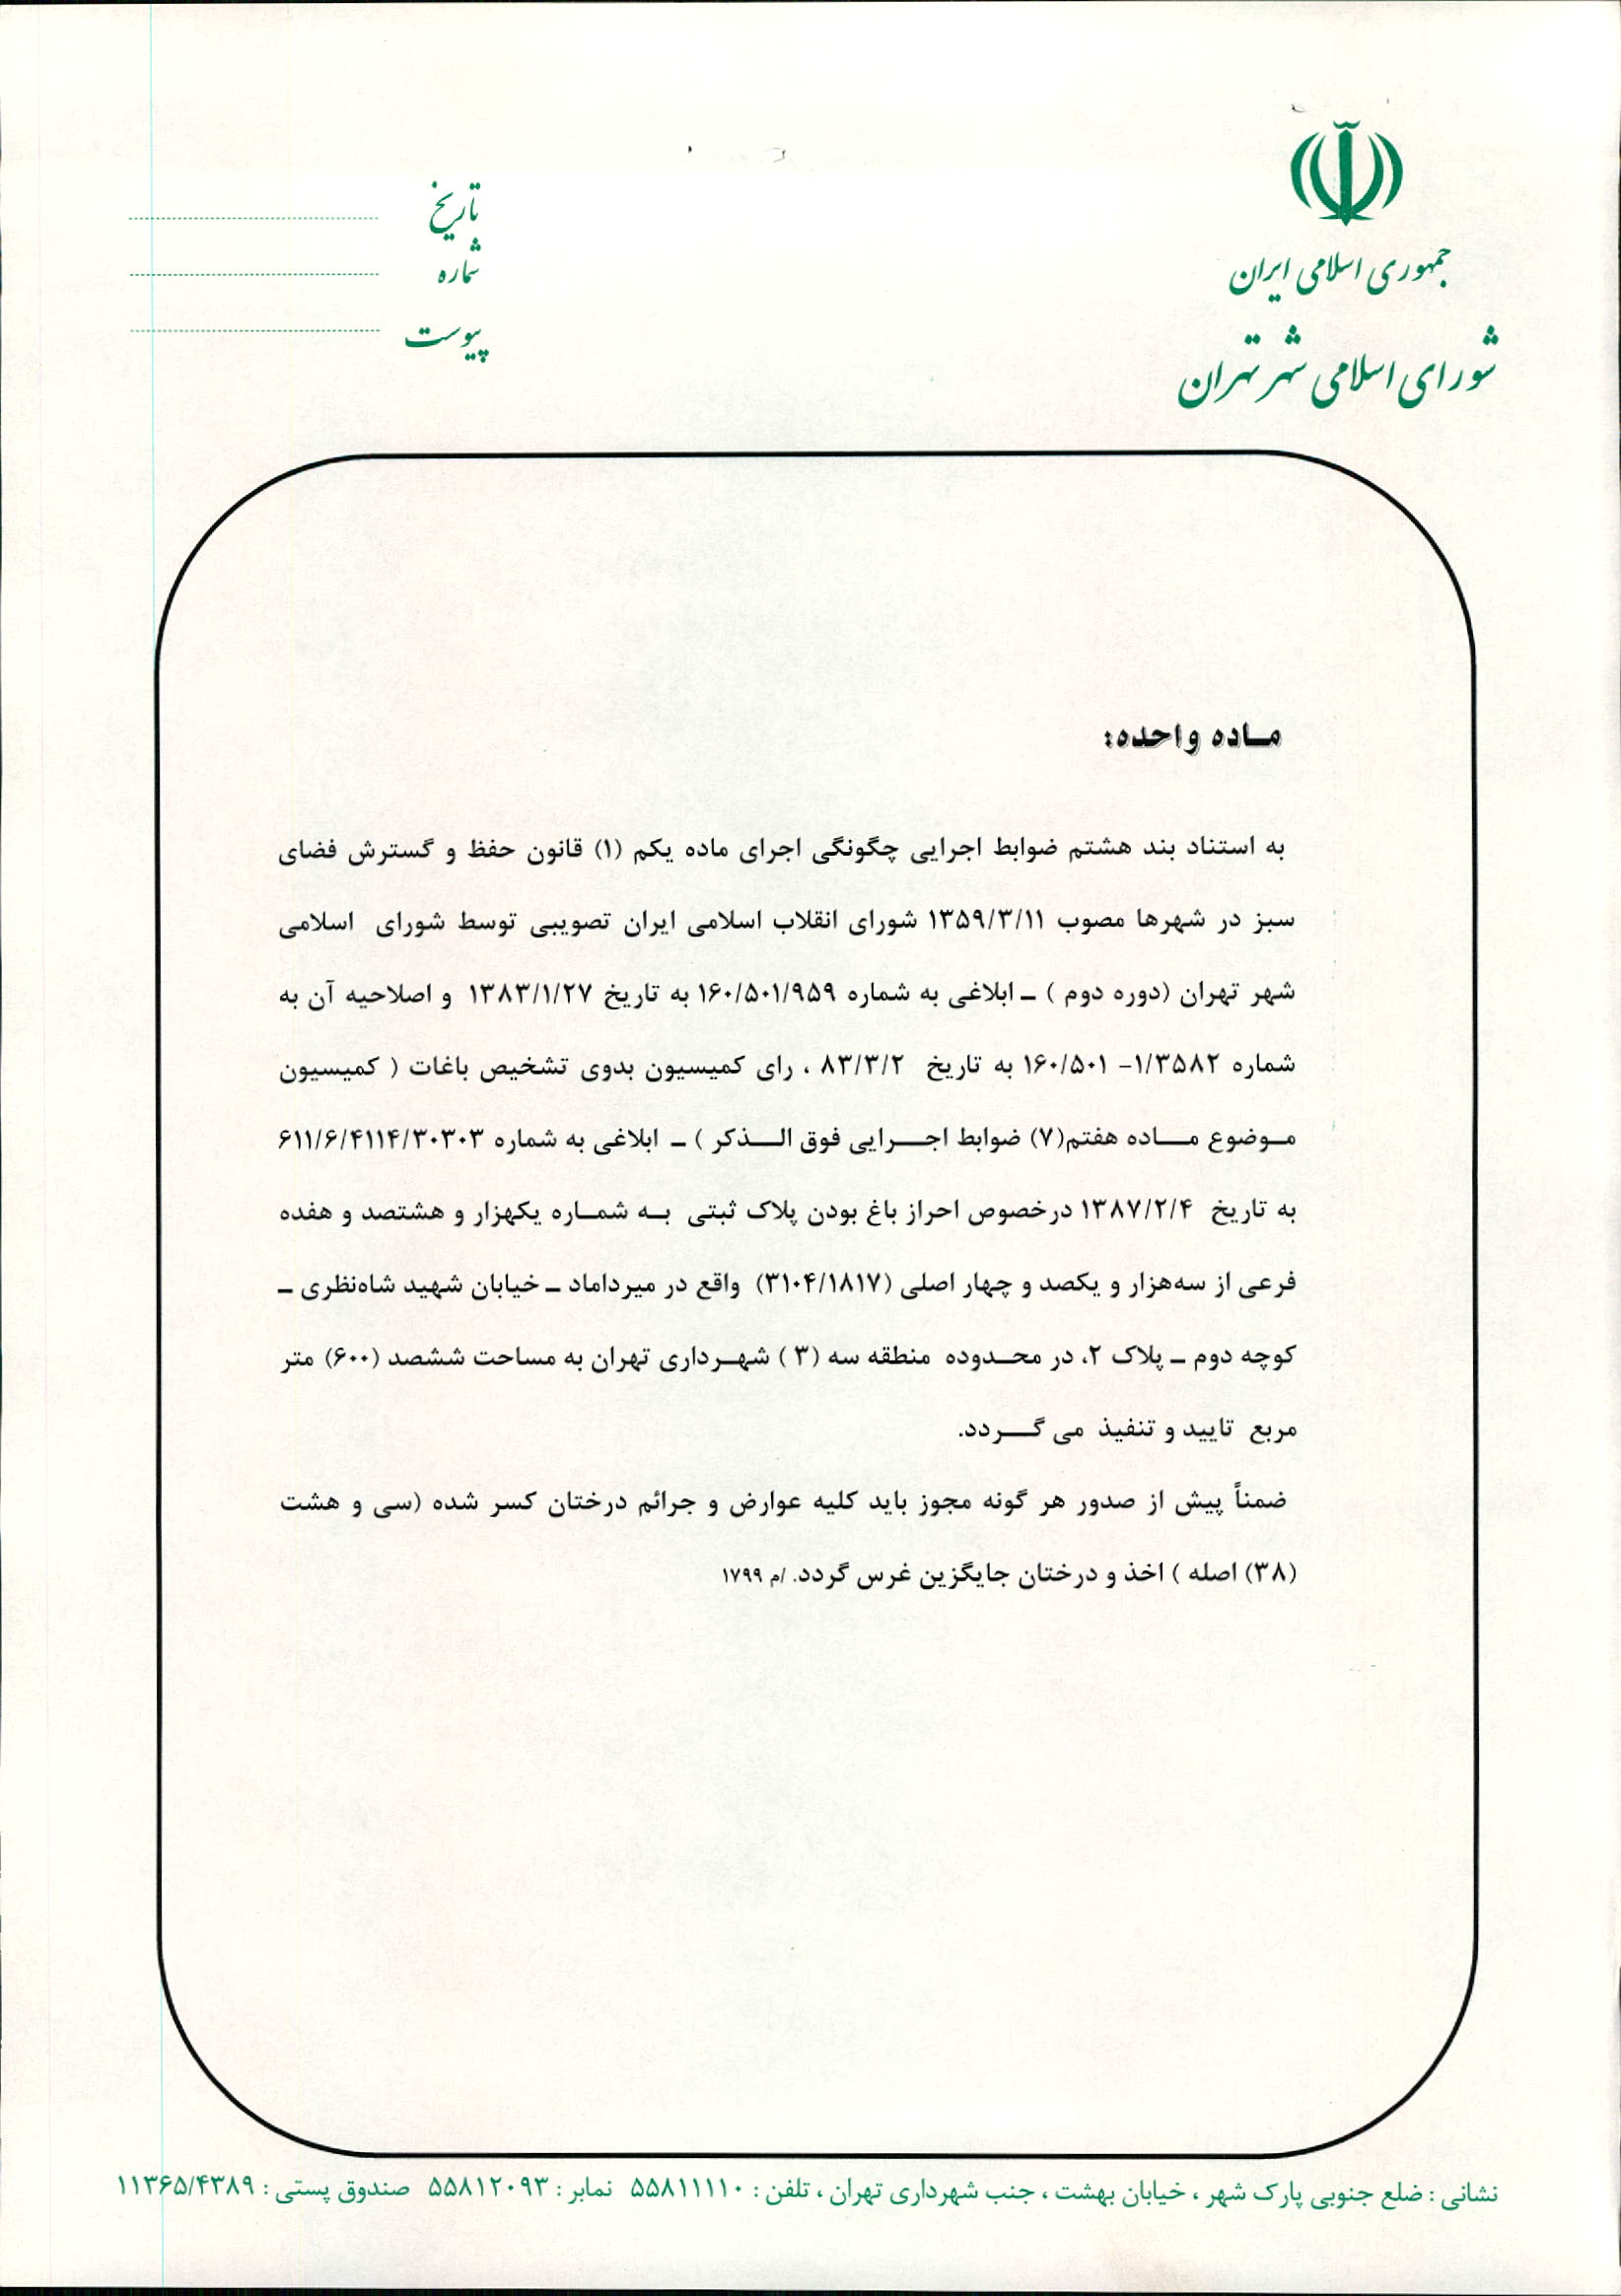 جمهوری اسلامی ایران
شورای اسلامی شهر تهران
تاریخ
شماره
پیوست
ماده واحده:
به استناد بند هشتم ضوابط اجرایی چگونگی اجرای ماده یکم (۱) قانون حفظ و گسترش فضای
سبز در شهرها مصوب ۱۳۵۹/۳/۱۱ شورای انقلاب اسلامی ایران تصویبی توسط شورای اسلامی
شهر تهران (دوره دوم ) ـ ابلاغی به شماره ۱۶۰/۵۰۱/۹۵۹ به تاریخ ۱۳۸۳/۱/۲۷ و اصلاحیه آن به
شماره ۱/۳۵۸۲- ۱۶۰/۵۰۱ به تاریخ ۸۳/۳/۲ ، رای کمیسیون بدوی تشخیص باغات ( کمیسیون
موضوع ماده هفتم(۷) ضوابط اجرایی فوق الذکر ) ـ ابلاغی به شماره ۶۱۱/۶/۴۱۱۴/۳۰۳۰۳
به تاریخ ۱۳۸۷/۲/۴ درخصوص احراز باغ بودن پلاک ثبتی به شماره یکهزار و هشتصد و هفده
فرعی از سه‌هزار و یکصد و چهار اصلی (۳۱۰۴/۱۸۱۷) واقع در میرداماد ـ خیابان شهید شاه‌نظری ـ
کوچه دوم ـ پلاک ۲، در محدوده منطقه سه (۳ ) شهرداری تهران به مساحت ششصد (۶۰۰) متر
مربع تایید و تنفیذ می گردد.
ضمناً پیش از صدور هر گونه مجوز باید کلیه عوارض و جرائم درختان کسر شده (سی و هشت
(۳۸) اصله ) اخذ و درختان جایگزین غرس گردد. /م ۱۷۹۹
نشانی : ضلع جنوبی پارک شهر ، خیابان بهشت ، جنب شهرداری تهران ، تلفن : ۵۵۸۱۱۱۱۰ نمابر : ۵۵۸۱۲۰۹۳ صندوق پستی : ۱۱۳۶۵/۴۳۸۹